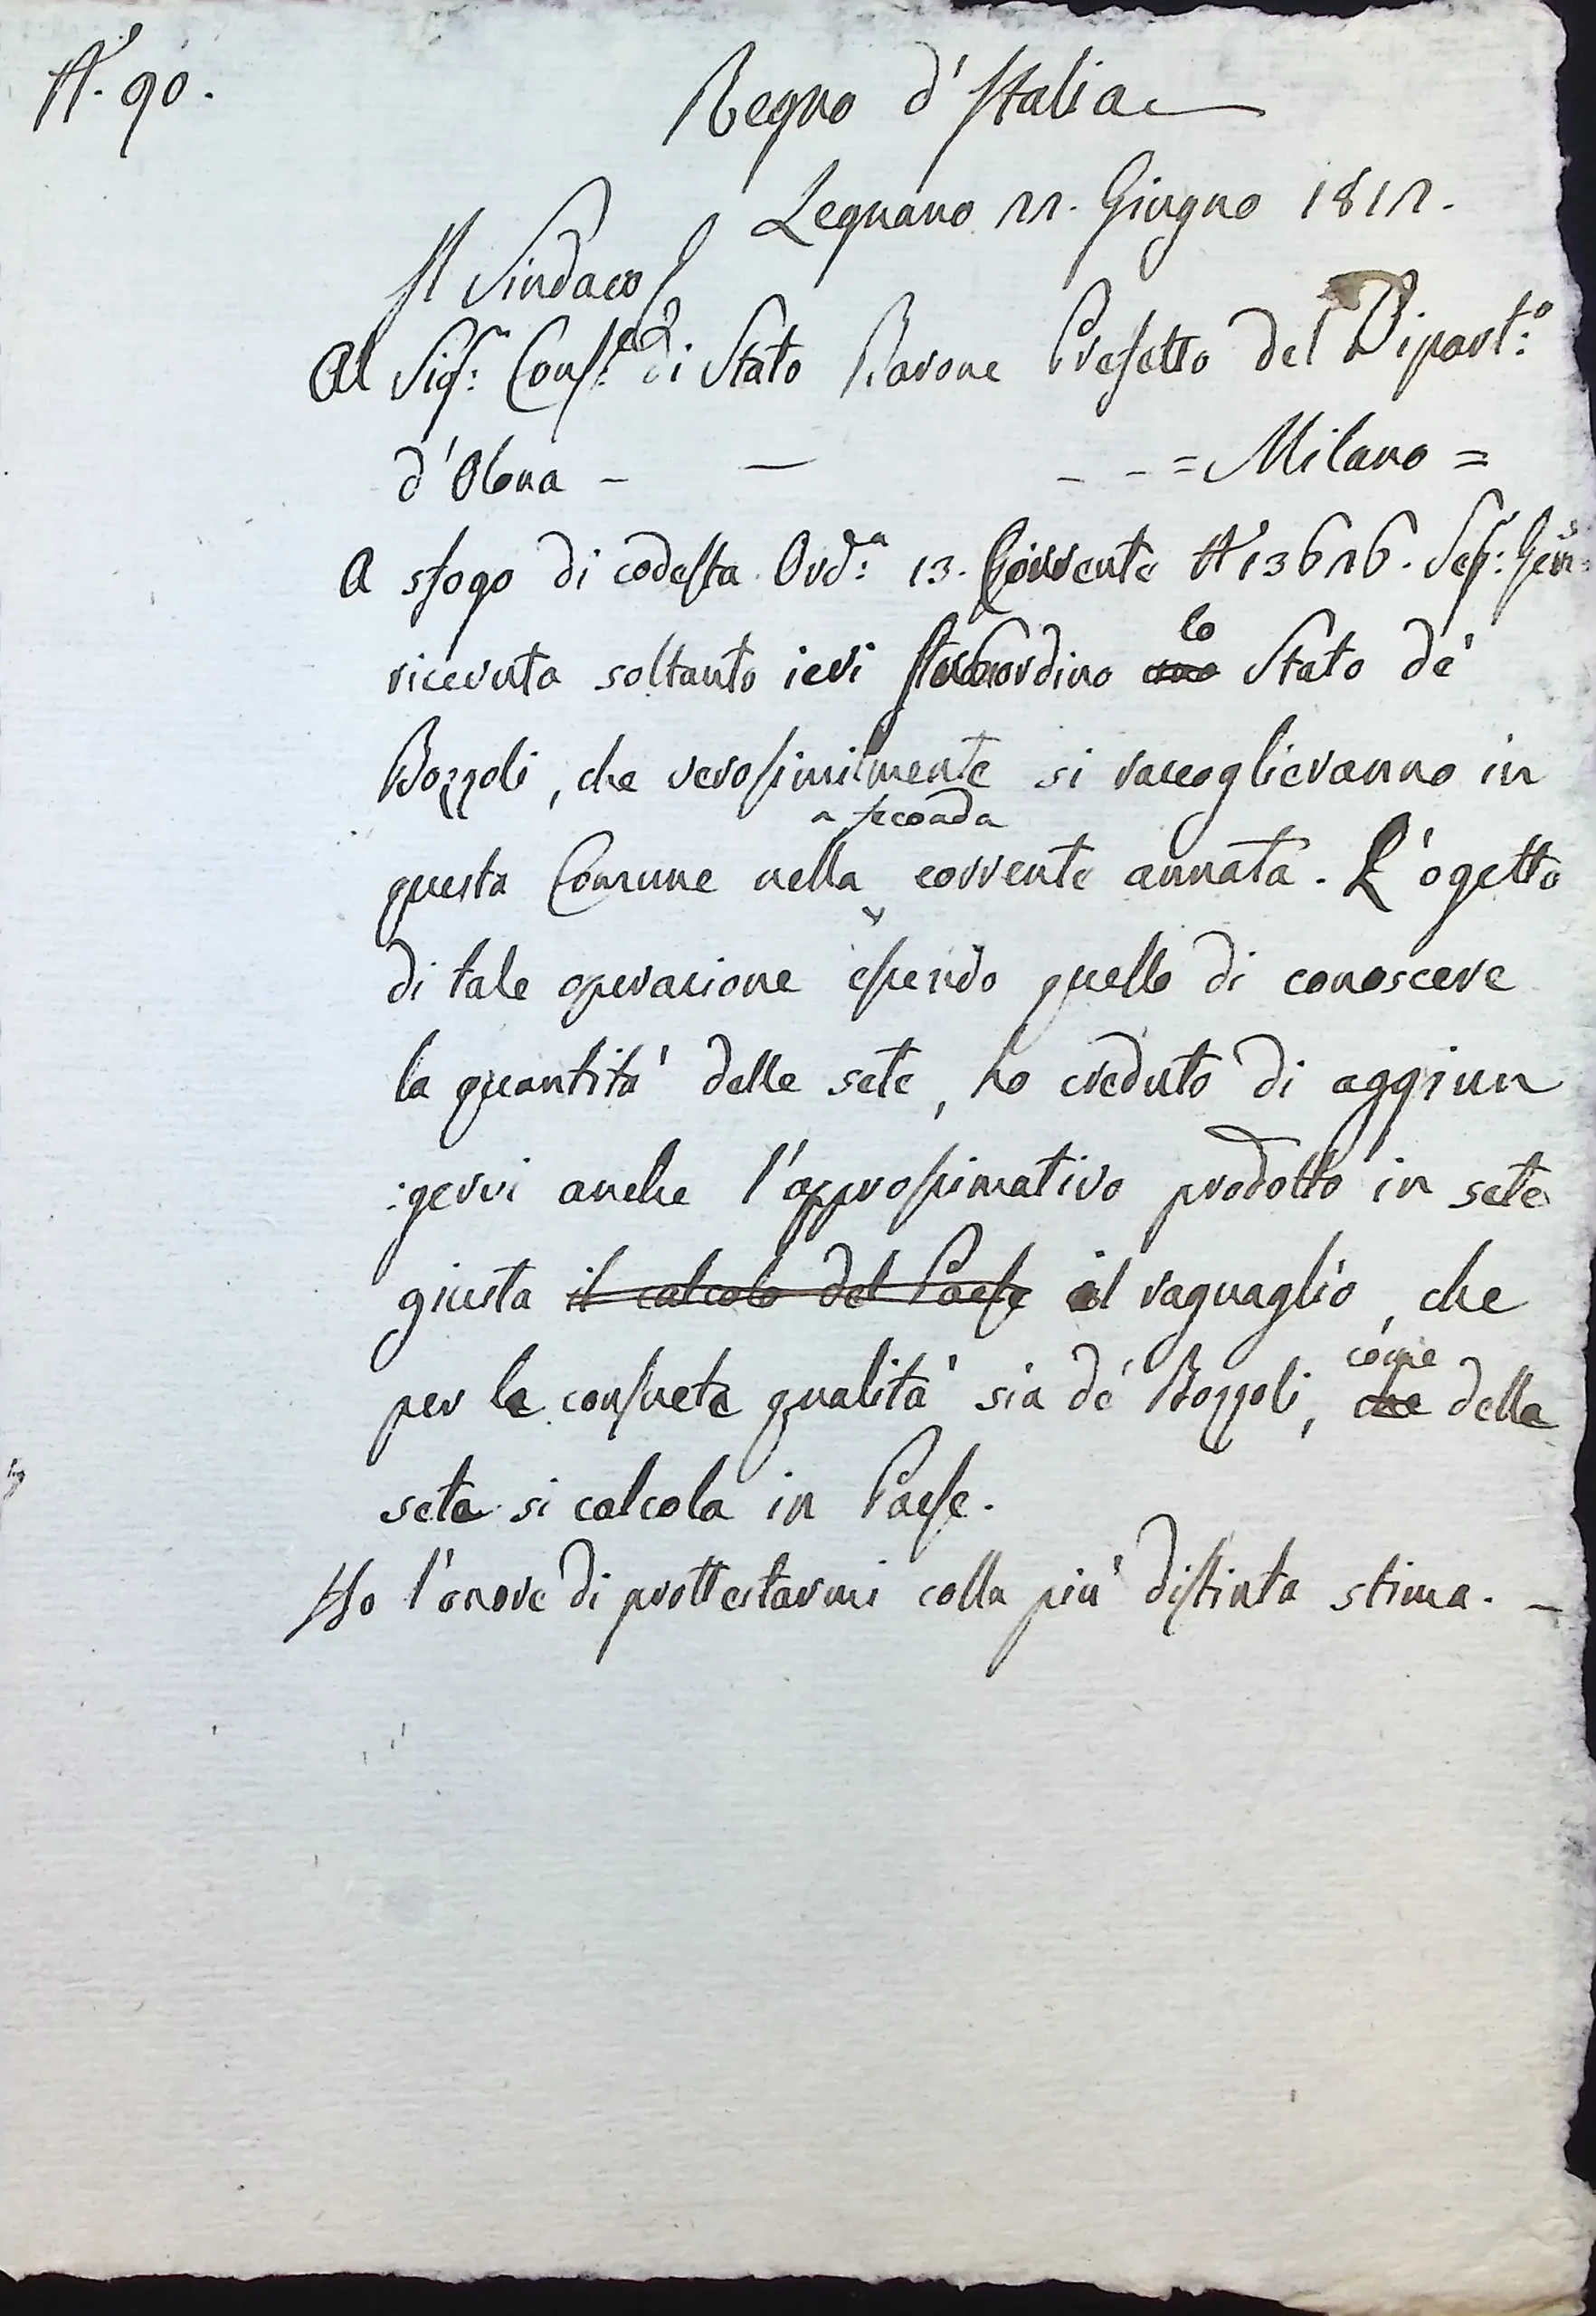 N.° 90.
Regno d'Italia
Legnano 22. Giugno 1812.
Il Sindaco
Al Sig.r Cons.e di Stato Barone Prefetto del Dipart.o
d'Olona - — - - = Milano =
A sfogo di codesta Ord.a 13. Corrente N.° 13626. Seg. Gen.
ricevuta soltanto ieri subordino lo Stato de'
Bozzoli, che verosimilmente si raccoglieranno in
a seconda
questa Comune nella corrente annata. L'ogetto
di tale operazione essendo quello di conoscere
la quantità delle sete, ho creduto di aggiun
:gervi anche l'approssimativo prodotto in sete
giusta il calcolo del Paese il raguaglio, che
per le consuete qualità sia de' Bozzoli, che come della
seta si calcola in Paese.
Ho l'onore di prottestarmi colla più distinta stima. -